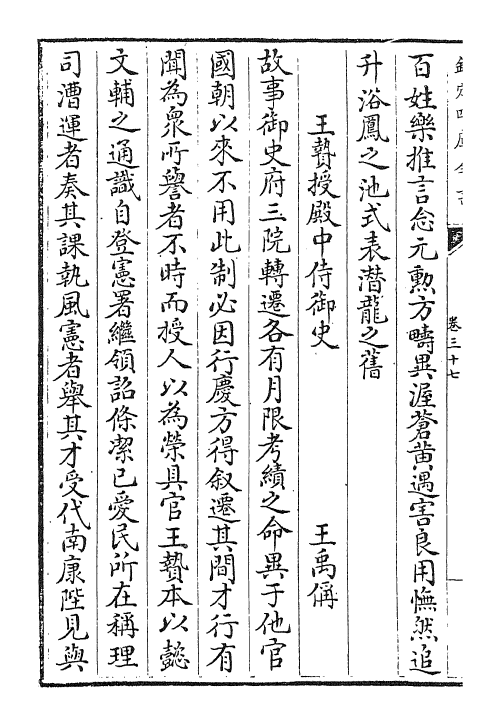 欽定四庫全書
卷三十七
百姓樂推言念元勲方疇異渥蒼黄遇害良用憮然追
升浴鳳之池式表潛龍之舊
王贄授殿中侍御史　王禹偁
故事御史府三院轉遷各有月限考績之命異于他官
國朝以來不用此制必因行慶方得叙遷其間才行有
聞為衆所譽者不時而授人以為榮具官王贄本以懿
文輔之通識自登憲署繼領詔條潔已愛民所在稱理
司漕運者奏其課執風憲者舉其才受代南康陛見與